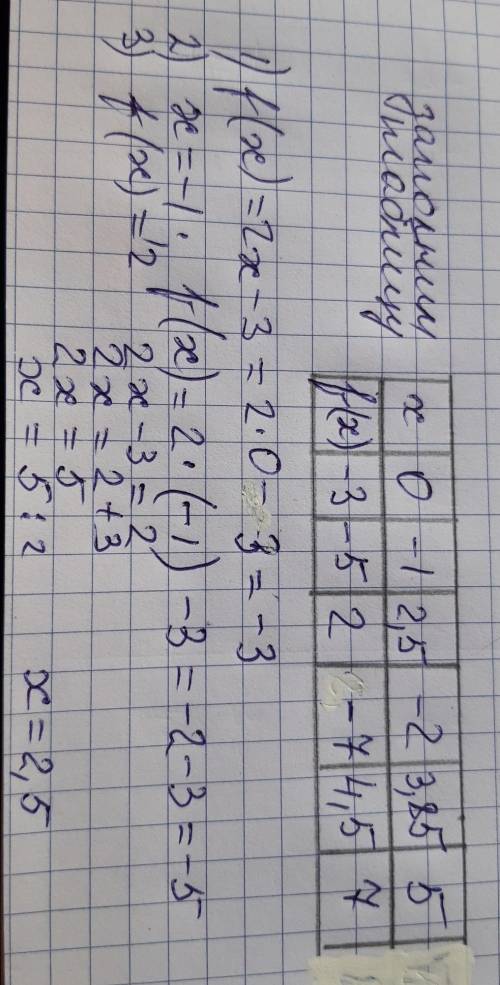 заполним
таблицу
x 0 -1 2,5 -2 3,85 5
f(x) -3 -5 2 -7 4,5 7
1) f(x) = 2x - 3 = 2·0 - 3 = -3
2) x = -1. f(x) = 2·(-1) - 3 = -2 - 3 = -5
3) f(x) = 2 2x - 3 = 2
2x = 2 + 3
2x = 5
x = 5 : 2 x = 2,5